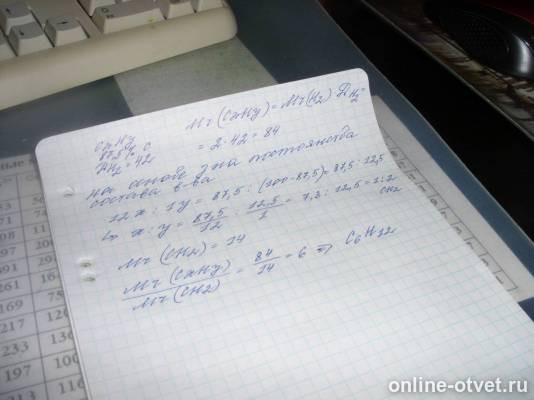 Mr (CxHy) = Mr(H2) · DH2 =
= 2·42 = 84
CxHy
87,5% C
DH2 = 42
на основе з-на постоянства
состава в-ва
12x : 1y = 87,5 : (100-87,5) = 87,5 : 12,5
x : y = 87,5/12 : 12,5/1 = 7,3 : 12,5 = 1:2
CH2
Mr (CH2) = 14
Mr (CxHy)/Mr (CH2) = 84/14 = 6 ⇒ C6H12
233
197
online-otvet.ru